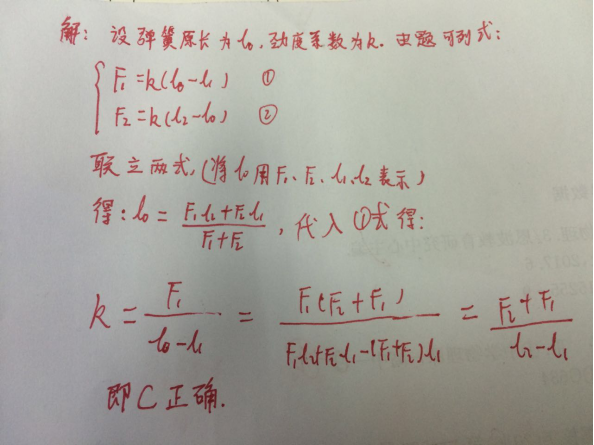 解：设弹簧原长为l₀，劲度系数为k．由题可列式：
F₁=k(l₀-l₁) ①
F₂=k(l₂-l₀) ②
联立两式，(将l₀用F₁、F₂、l₁、l₂表示)
得：l₀ = (F₁l₂+F₂l₁)/(F₁+F₂)，代入①式得：
k = F₁/(l₀-l₁) = F₁(F₂+F₁)/(F₁l₂+F₂l₁-(F₁+F₂)l₁) = (F₂+F₁)/(l₂-l₁)
即C正确．